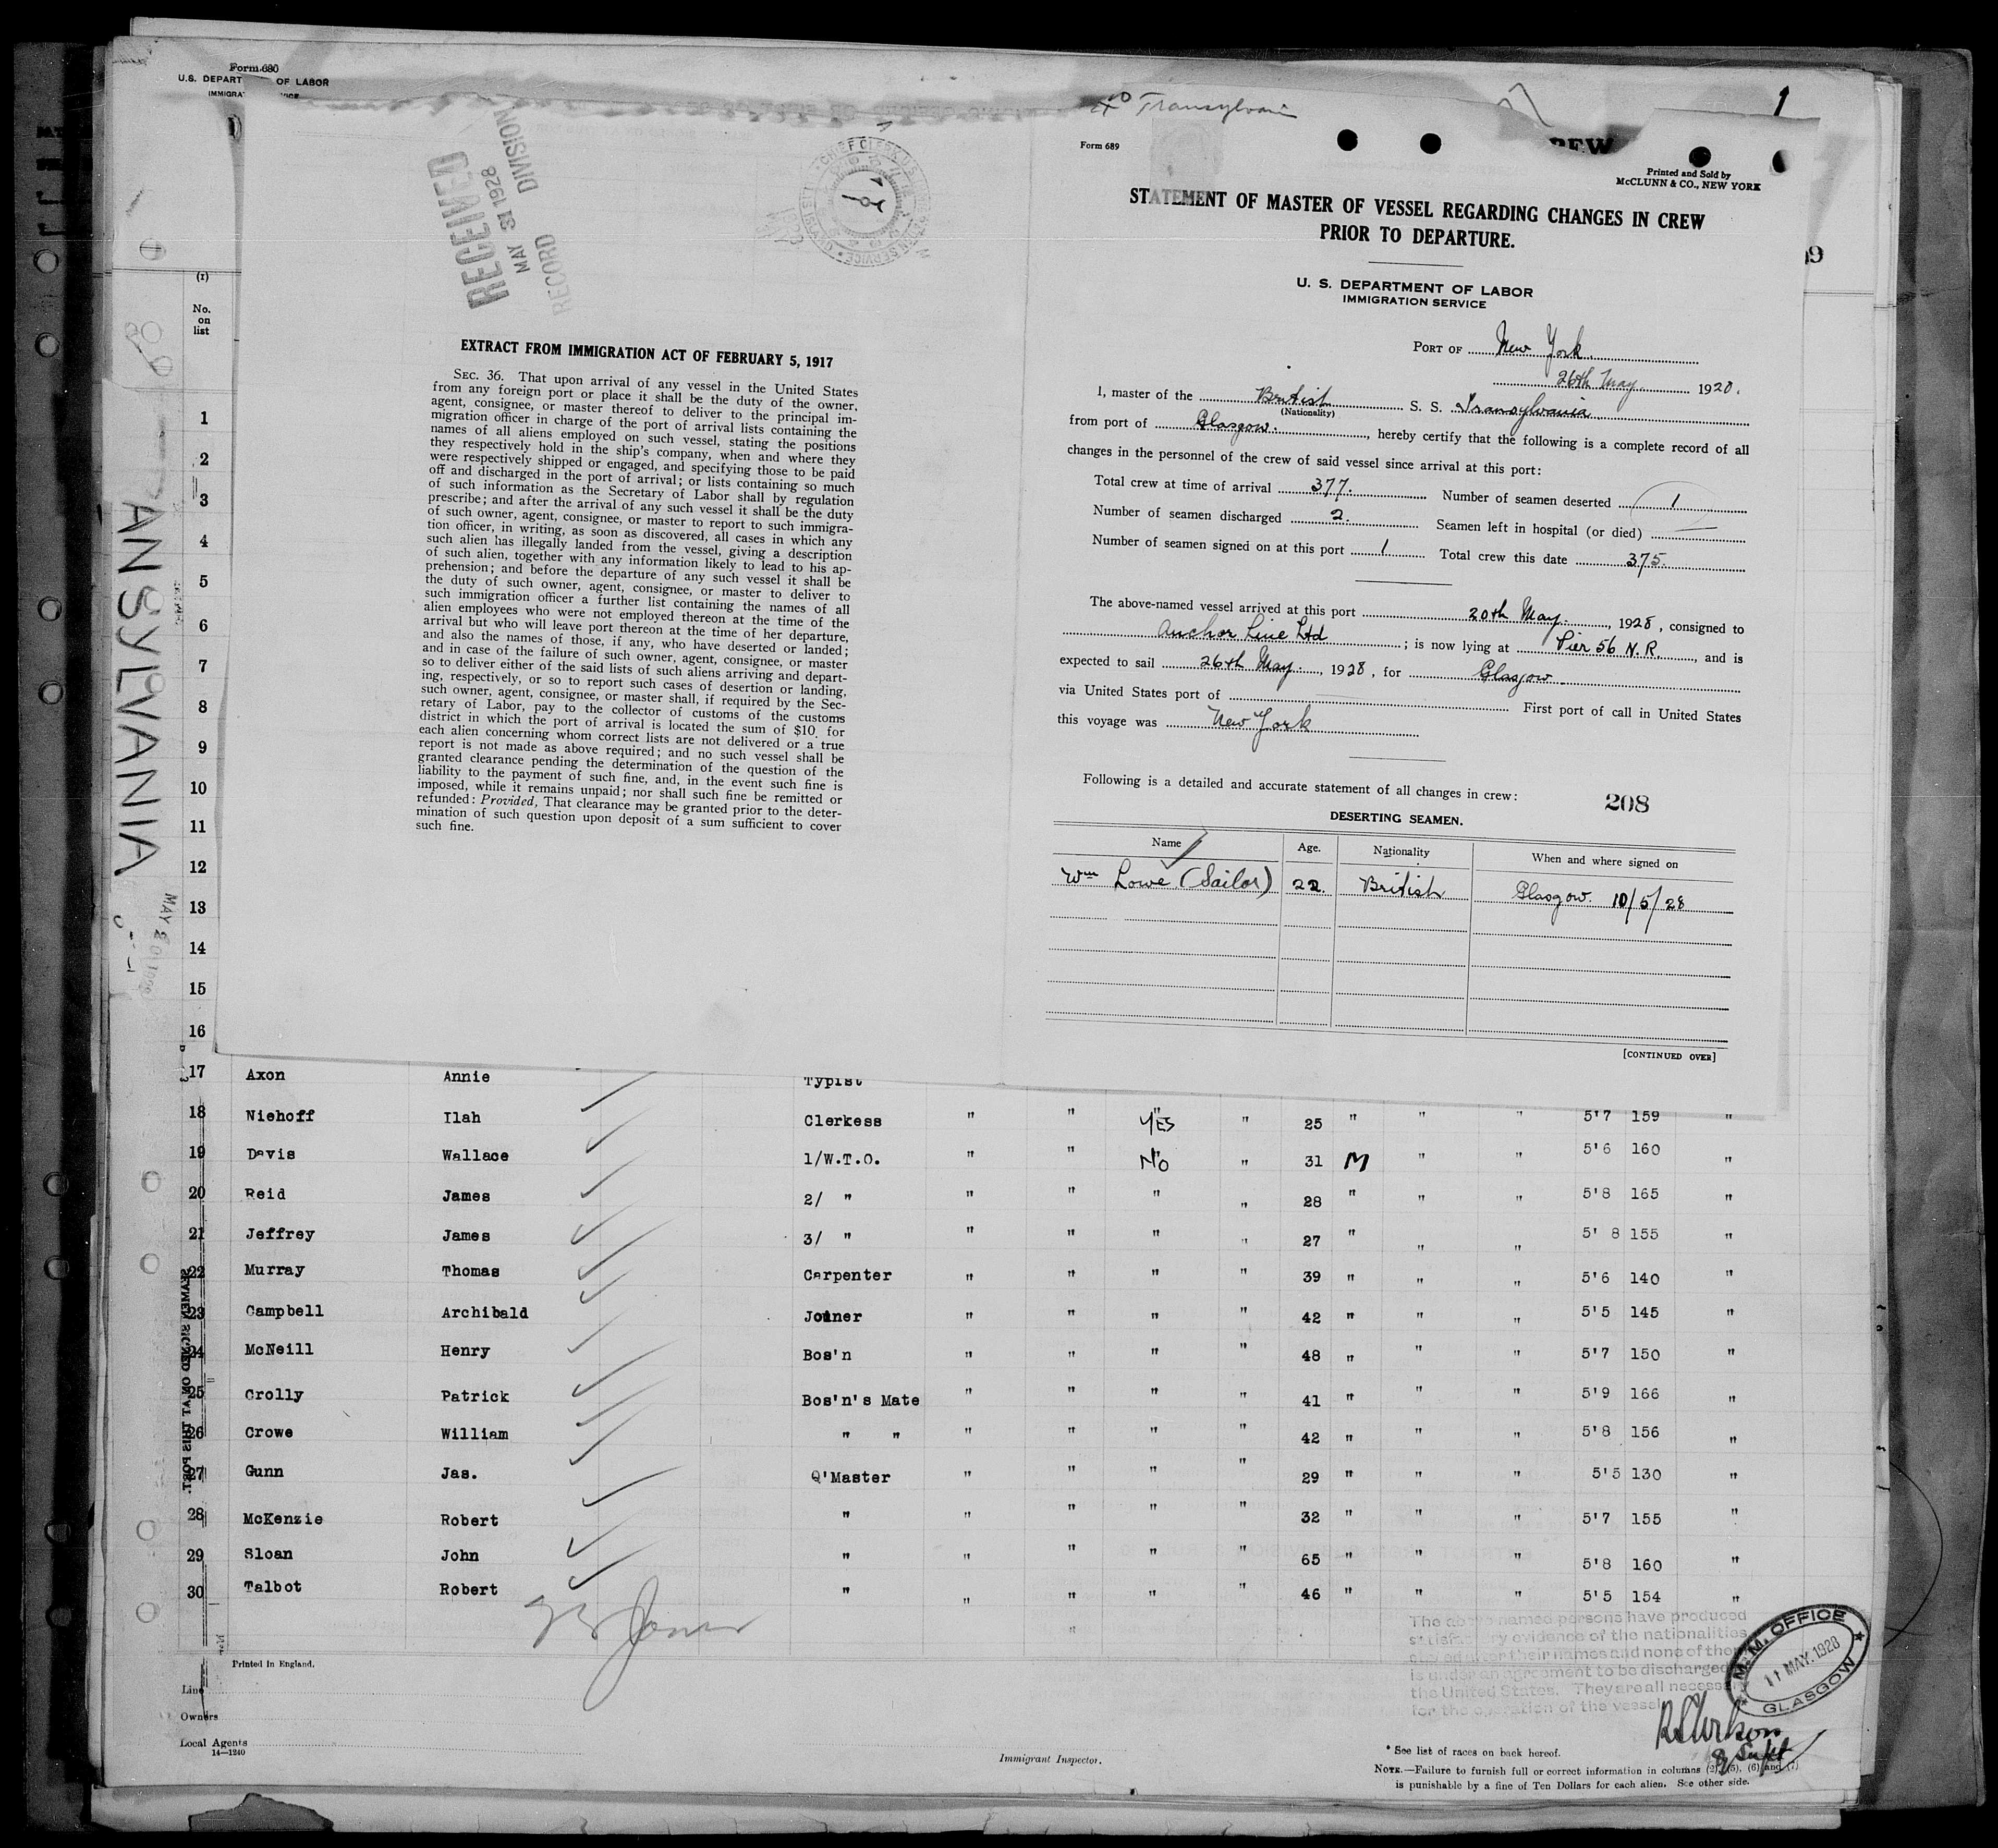 Form 680
U.S. DEPART OF LABOR
IMMIGRA
RECEIVED
MAY 31 1928
RECORD DIVISION
CHIEF CLERK U.S.
ANSYLVANIA
MAY 20
(1)
No.
on
list
1
2
3
4
5
6
7
8
9
10
11
12
13
14
15
16
EXTRACT FROM IMMIGRATION ACT OF FEBRUARY 5, 1917
SEC. 36. That upon arrival of any vessel in the United States
from any foreign port or place it shall be the duty of the owner,
agent, consignee, or master thereof to deliver to the principal im-
migration officer in charge of the port of arrival lists containing the
names of all aliens employed on such vessel, stating the positions
they respectively hold in the ship's company, when and where they
were respectively shipped or engaged, and specifying those to be paid
off and discharged in the port of arrival; or lists containing so much
of such information as the Secretary of Labor shall by regulation
prescribe; and after the arrival of any such vessel it shall be the duty
of such owner, agent, consignee, or master to report to such immigra-
tion officer, in writing, as soon as discovered, all cases in which any
such alien has illegally landed from the vessel, giving a description
of such alien, together with any information likely to lead to his ap-
prehension; and before the departure of any such vessel it shall be
the duty of such owner, agent, consignee, or master to deliver to
such immigration officer a further list containing the names of all
alien employees who were not employed thereon at the time of the
arrival but who will leave port thereon at the time of her departure,
and also the names of those, if any, who have deserted or landed;
and in case of the failure of such owner, agent, consignee, or master
so to deliver either of the said lists of such aliens arriving and depart-
ing, respectively, or so to report such cases of desertion or landing,
such owner, agent, consignee, or master shall, if required by the Sec-
retary of Labor, pay to the collector of customs of the customs
district in which the port of arrival is located the sum of $10 for
each alien concerning whom correct lists are not delivered or a true
report is not made as above required; and no such vessel shall be
granted clearance pending the determination of the question of the
liability to the payment of such fine, and, in the event such fine is
imposed, while it remains unpaid; nor shall such fine be remitted or
refunded: Provided, That clearance may be granted prior to the deter-
mination of such question upon deposit of a sum sufficient to cover
such fine.
Transylvania
1
Form 689
REW
Printed and Sold by
McCLUNN & CO., NEW YORK
STATEMENT OF MASTER OF VESSEL REGARDING CHANGES IN CREW
PRIOR TO DEPARTURE.
U. S. DEPARTMENT OF LABOR
IMMIGRATION SERVICE
PORT OF New York
26th May 1928.
I, master of the British S. S. Transylvania
(Nationality)
from port of Glasgow, hereby certify that the following is a complete record of all
changes in the personnel of the crew of said vessel since arrival at this port:
Total crew at time of arrival 377. Number of seamen deserted 1
Number of seamen discharged 2. Seamen left in hospital (or died) —
Number of seamen signed on at this port 1 Total crew this date 375.
The above-named vessel arrived at this port 20th May, 1928, consigned to
Anchor Line Ltd; is now lying at Pier 56 N.R., and is
expected to sail 26th May, 1928, for Glasgow
via United States port of First port of call in United States
this voyage was New York
Following is a detailed and accurate statement of all changes in crew:
208
DESERTING SEAMEN.
Name Age. Nationality When and where signed on
Wm Lowe (Sailor) 22. British Glasgow. 10/5/28
[CONTINUED OVER]
17 Axon Annie Typist
18 Niehoff Ilah Clerkess " " YES " 25 " " " 5'7 159 "
19 Davis Wallace 1/W.T.O. " " NO " 31 M " " 5'6 160 "
20 Reid James 2/ " " " " " 28 " " " 5'8 165 "
21 Jeffrey James 3/ " " " " " 27 " " " 5' 8 155 "
22 Murray Thomas Carpenter " " " " 39 " " " 5'6 140 "
23 Campbell Archibald Joiner " " " " 42 " " " 5'5 145 "
24 McNeill Henry Bos'n " " " " 48 " " " 5'7 150 "
25 Crolly Patrick Bos'n's Mate " " " " 41 " " " 5'9 166 "
26 Crowe William " " " " " " 42 " " " 5'8 156 "
27 Gunn Jas. Q'Master " " " " 29 " " " 5'5 130 "
28 McKenzie Robert " " " " " 32 " " " 5'7 155 "
29 Sloan John " " " " " 65 " " " 5'8 160 "
30 Talbot Robert " " " " " 46 " " " 5'5 154 "
SEAMEN SIGNED ON AT THIS PORT.
The above named persons have produced
satisfactory evidence of the nationalities
after their names and none of them
is under an agreement to be discharged
the United States. They are all necessary
for the operation of the vessel
M. M. OFFICE
11 MAY. 1928
GLASGOW
Printed in England.
Line
Owners
Local Agents
14—1240
Immigrant Inspector.
* See list of races on back hereof.
NOTE.—Failure to furnish full or correct information in columns (2), (5), (6) and (7)
is punishable by a fine of Ten Dollars for each alien. See other side.